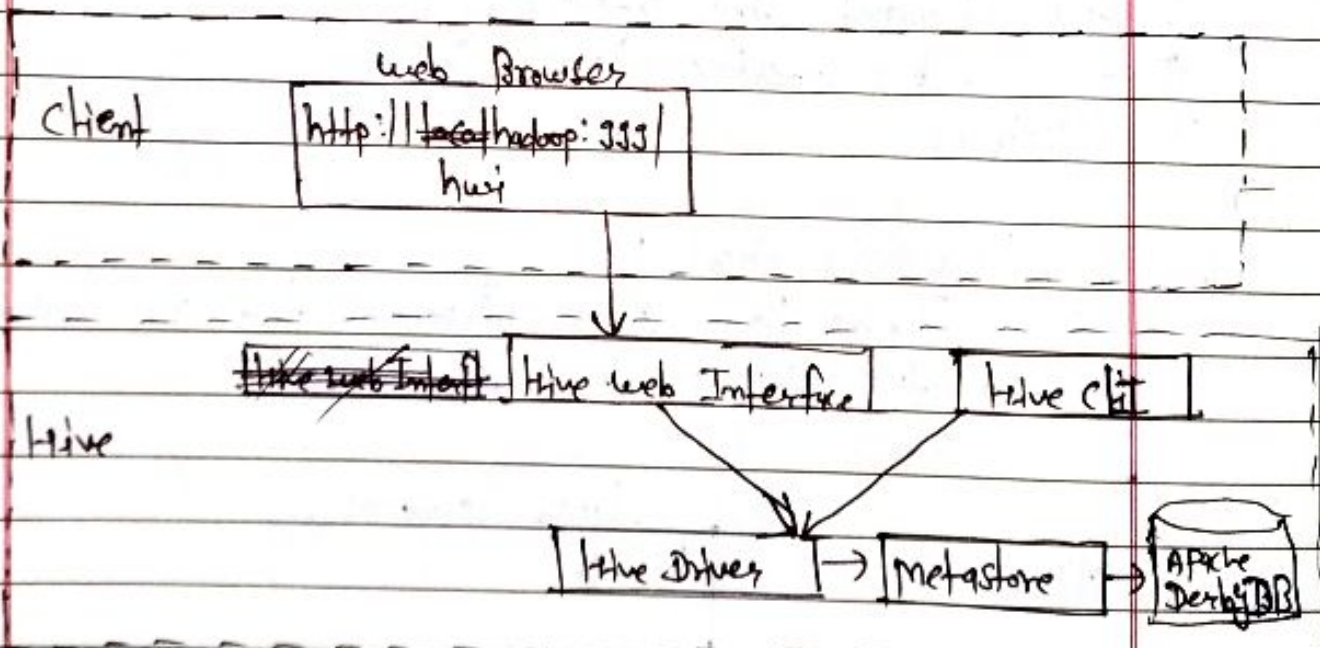 Web Browser
Client
http://hadoop:999/
hwi
Hive web Interface
Hive CLI
Hive
Hive Driver
Metastore
Apache
Derby DB